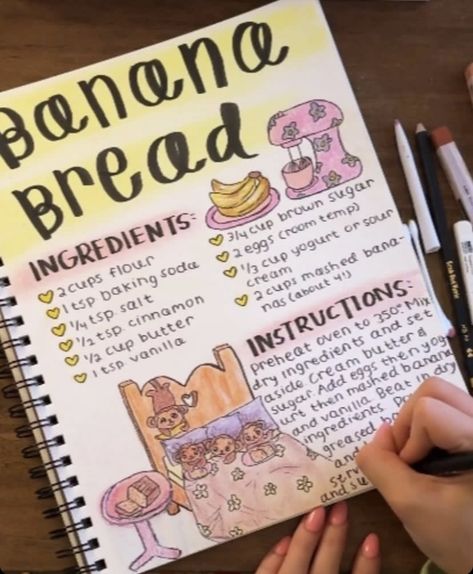 Banana
Bread
INGREDIENTS:
2 cups flour
1 tsp baking soda
1/4 tsp salt
1/2 tsp. cinnamon
1/2 cup butter
1 tsp vanilla
3/4 cup brown sugar
2 eggs (room temp)
1/3 cup yogurt or sour
cream
2 cups mashed bana-
nas (about 4!)
INSTRUCTIONS:
preheat oven to 350°. Mix
dry ingredients and set
aside. Cream butter &
sugar. Add eggs then yog-
urt then mashed banana
and vanilla. Beat in dry
ingredients.
greased
and
and